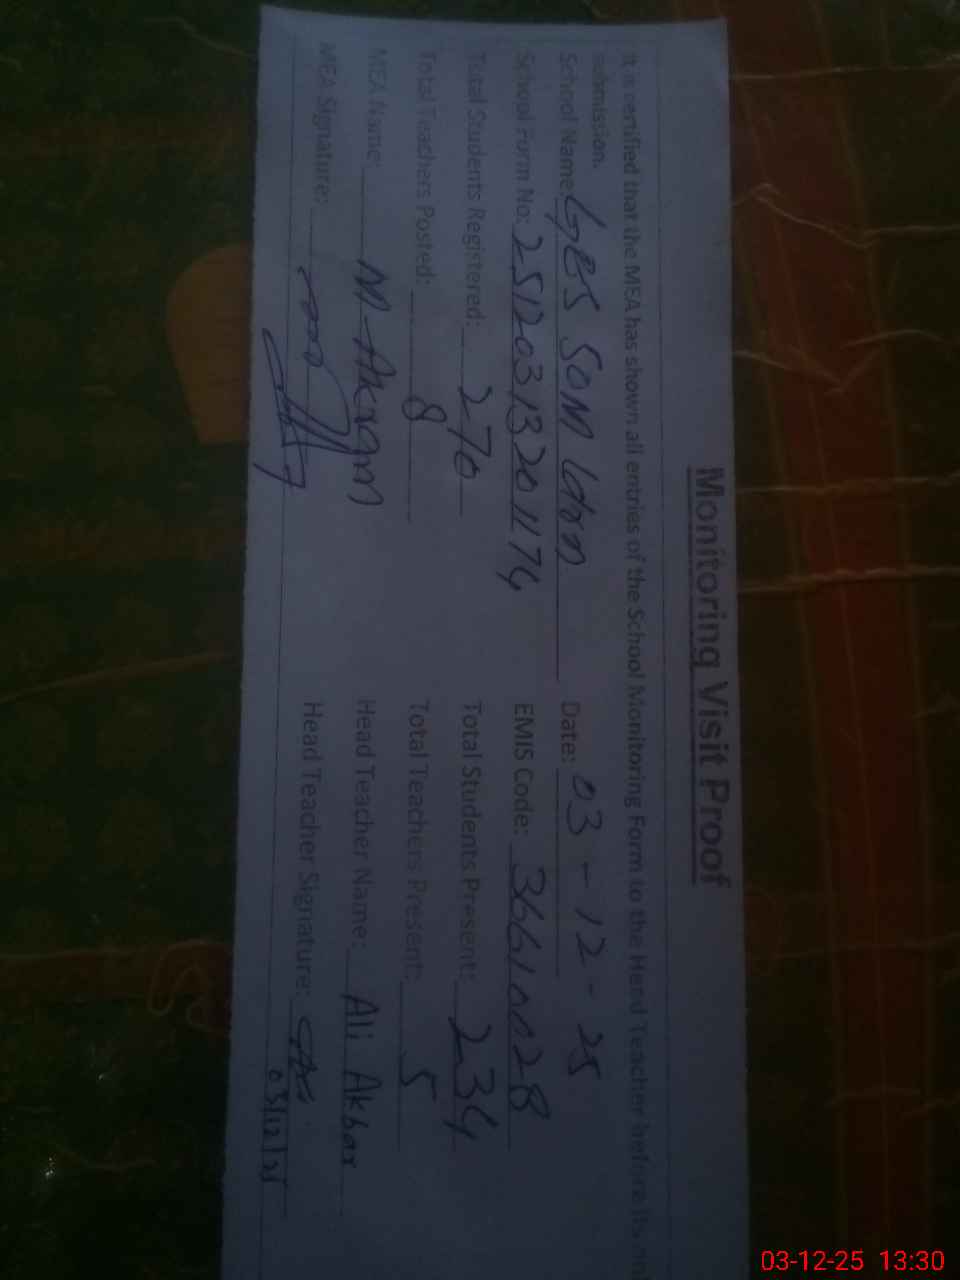 Monitoring Visit Proof
It is certified that the MEA has shown all entries of the School Monitoring Form to the Head Teacher before its
submission.
School Name: GES SOM Date: 03-12-25
School Form No: 2512031320 1174 EMIS Code: 36610028
Total Students Registered: 270 Total Students Present: 234
Total Teachers Posted: 8 Total Teachers Present: 5
MEA Name: M-Akram Head Teacher Name: Ali Akbar
MEA Signature: Head Teacher Signature:
03/12/25
03-12-25 13:30